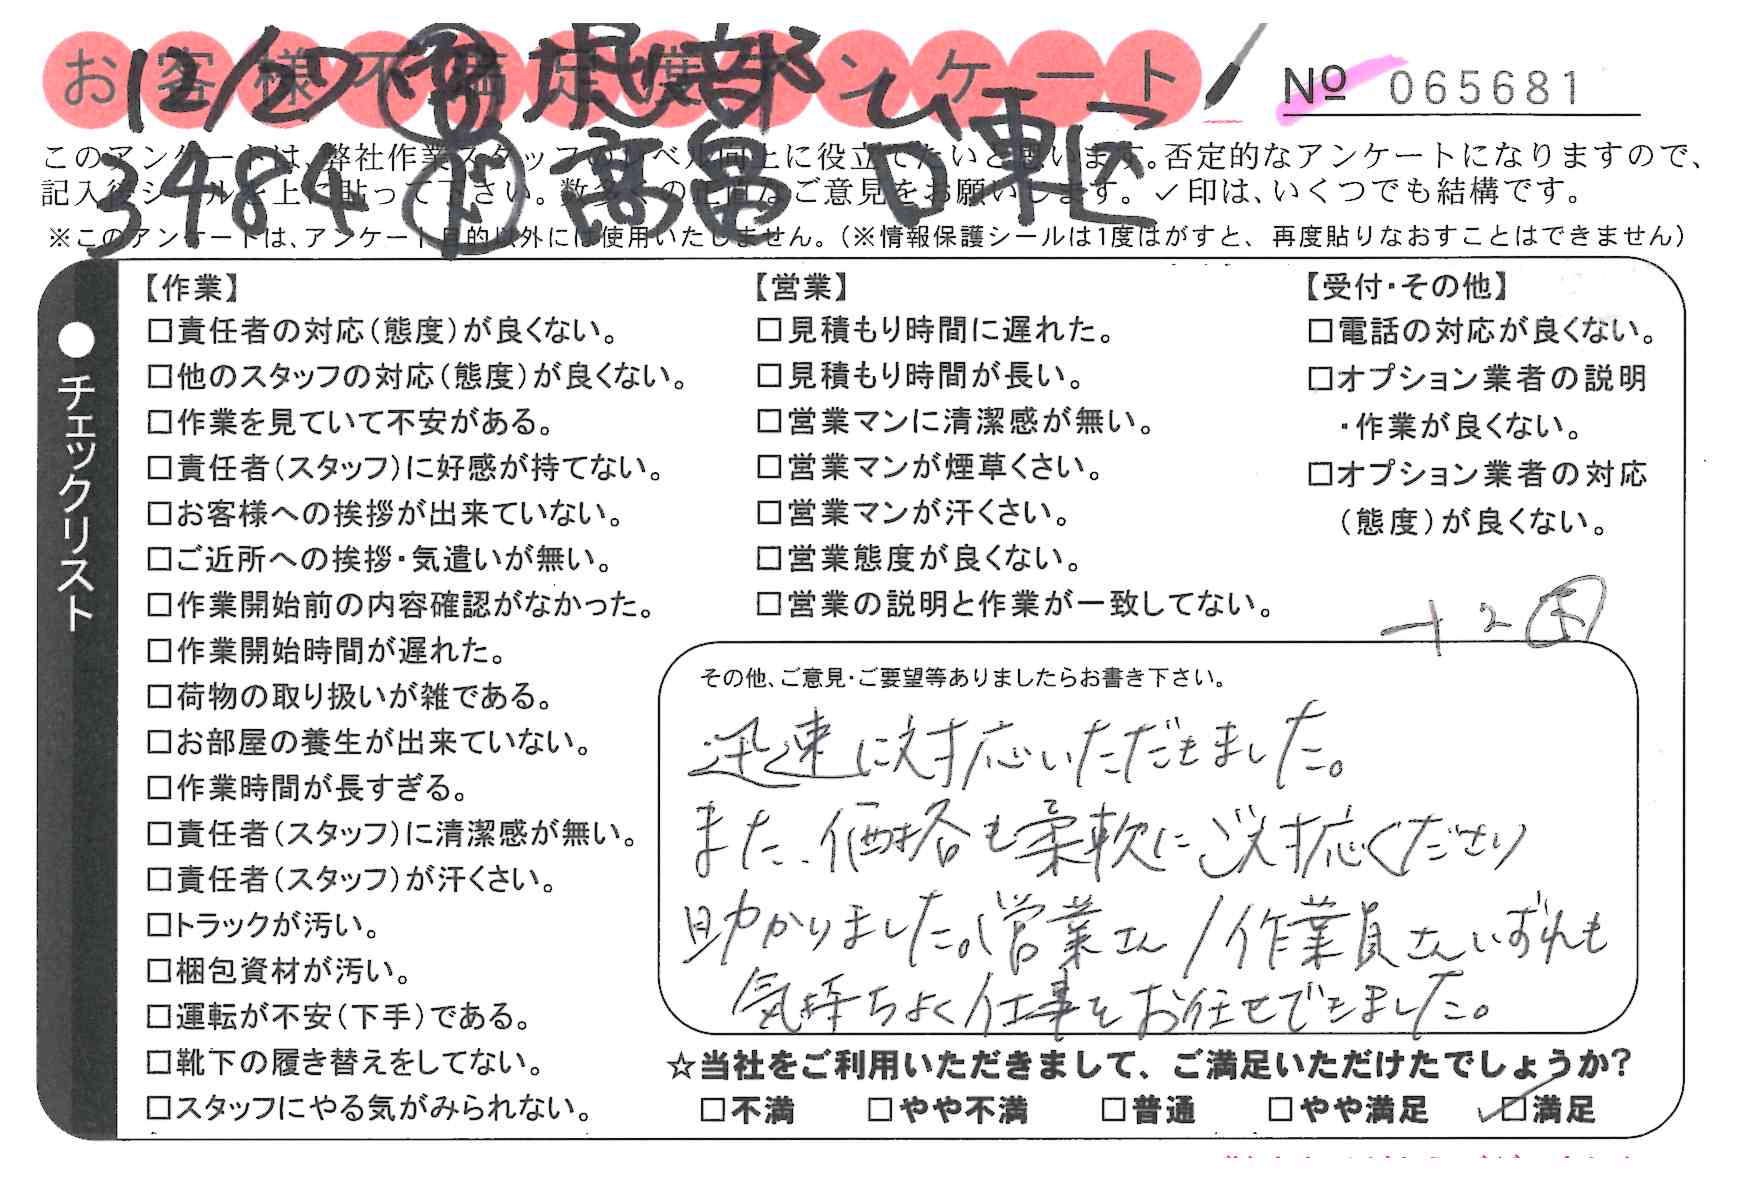 お客様不満足度アンケート
№ 065681
12/27
3484 下 高畠 東
このアンケートは、弊社作業スタッフのレベル向上に役立てたいと思います。否定的なアンケートになりますので、
記入後シールを上に貼って下さい。数多くの正直なご意見をお願いします。✓印は、いくつでも結構です。
※このアンケートは、アンケート目的以外には使用いたしません。（※情報保護シールは1度はがすと、再度貼りなおすことはできません）
●チェックリスト
【作業】
□責任者の対応（態度）が良くない。
□他のスタッフの対応（態度）が良くない。
□作業を見ていて不安がある。
□責任者（スタッフ）に好感が持てない。
□お客様への挨拶が出来ていない。
□ご近所への挨拶・気遣いが無い。
□作業開始前の内容確認がなかった。
□作業開始時間が遅れた。
□荷物の取り扱いが雑である。
□お部屋の養生が出来ていない。
□作業時間が長すぎる。
□責任者（スタッフ）に清潔感が無い。
□責任者（スタッフ）が汗くさい。
□トラックが汚い。
□梱包資材が汚い。
□運転が不安（下手）である。
□靴下の履き替えをしてない。
□スタッフにやる気がみられない。
【営業】
□見積もり時間に遅れた。
□見積もり時間が長い。
□営業マンに清潔感が無い。
□営業マンが煙草くさい。
□営業マンが汗くさい。
□営業態度が良くない。
□営業の説明と作業が一致してない。
【受付・その他】
□電話の対応が良くない。
□オプション業者の説明
・作業が良くない。
□オプション業者の対応
（態度）が良くない。
+2
その他、ご意見・ご要望等ありましたらお書き下さい。
迅速に対応いただきました。
また、価格も柔軟にご対応くださり
助かりました。営業さん/作業員さんいずれも
気持ちよく仕事をお任せできました。
☆当社をご利用いただきまして、ご満足いただけたでしょうか？
□不満 □やや不満 □普通 □やや満足 ☑満足